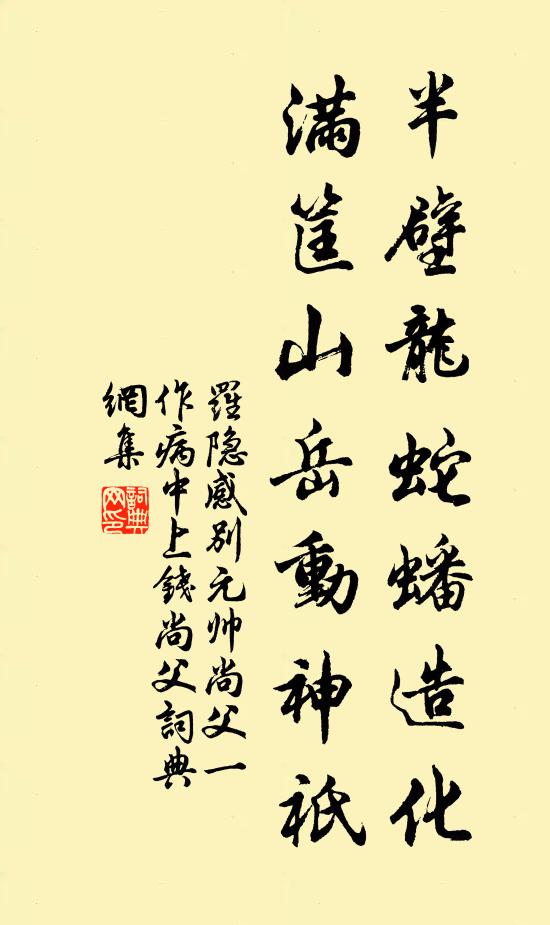 半壁龍蛇蟠造化
滿筐山岳動神祇
羅隐感别元帅尚父一
作病中上錢尚父詞典
網集
詞典
网印